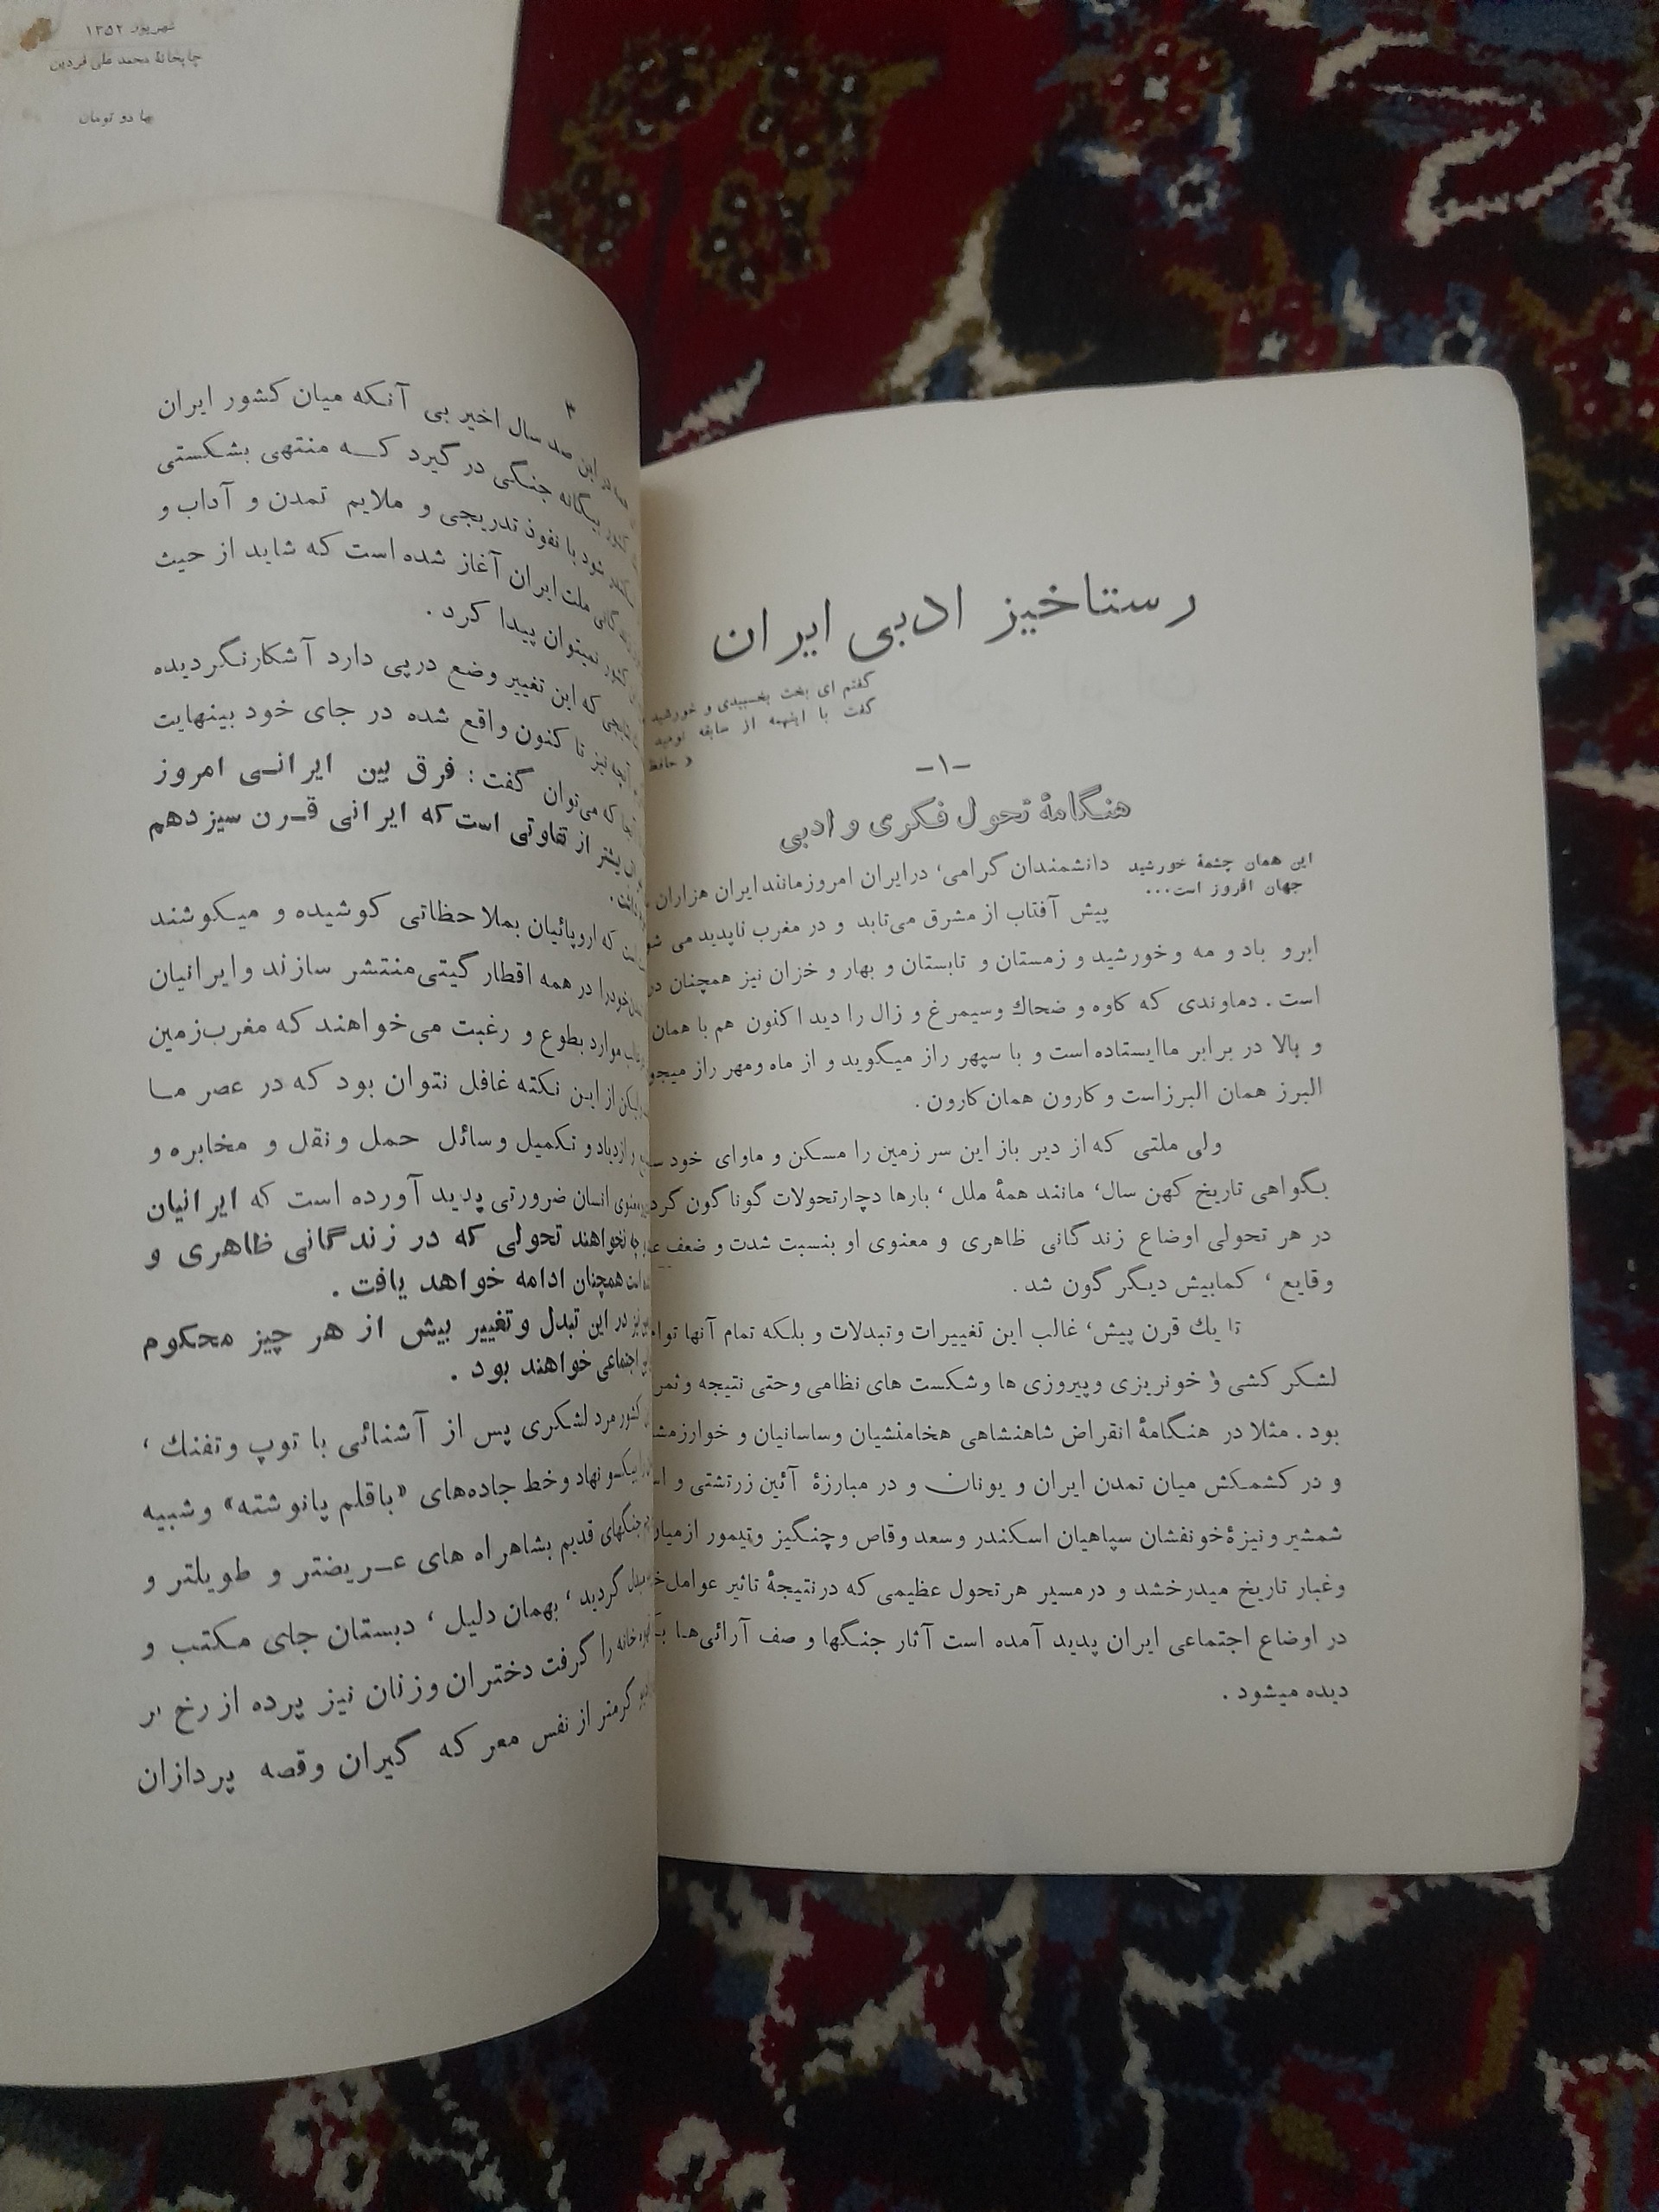 شهریور ۱۳۵۲
چاپخانهٔ محمد علی فردین
بها دو تومان
رستاخیز ادبی ایران
گفتم ای بخت بخسبیدی و خورشید
گفت با اینهمه از سابقه نومید
« حافظ
-۱-
هنگامهٔ تحول فکری و ادبی
این همان چشمهٔ خورشید
جهان افروز است...
دانشمندان گرامی، درایران امروزمانند ایران هزاران
پیش آفتاب از مشرق می‌تابد و در مغرب ناپدید می
ابرو باد و مه وخورشید و زمستان و تابستان و بهار و خزان نیز همچنان
است . دماوندی که کاوه و ضحاك وسیمرغ و زال را دید اکنون هم با همان
و بالا در برابر ماایستاده است و با سپهر راز میگوید و از ماه ومهر راز
البرز همان البرزاست و کارون همان کارون .
ولی ملتی که از دیر باز این سر زمین را مسکن و ماوای خود
بگواهی تاریخ کهن سال، مانند همهٔ ملل ، بارها دچارتحولات گوناگون
در هر تحولی اوضاع زندگانی ظاهری و معنوی او بنسبت شدت و ضعف
وقایع ، کمابیش دیگر گون شد .
تا یك قرن پیش، غالب این تغییرات وتبدلات و بلکه تمام آنها
لشکر کشی و خونریزی وپیروزی ها وشکست های نظامی وحتی نتیجه
بود . مثلا در هنگامهٔ انقراض شاهنشاهی هخامنشیان وساسانیان و
و در کشمکش میان تمدن ایران و یونان و در مبارزهٔ آئین زرتشتی و
شمشیر ونیزهٔ خونفشان سپاهیان اسکندر وسعد وقاص وچنگیز وتیمور
وغبار تاریخ میدرخشد و درمسیر هرتحول عظیمی که درنتیجهٔ تاثیر عوامل
در اوضاع اجتماعی ایران پدید آمده است آثار جنگها و صف آرائی‌ها
دیده میشود .
۳
این صد سال اخیر بی آنکه میان کشور ایران
بیگانه جنگی در گیرد کـه منتهی بشکستی
شود با نفوذ تدریجی و ملایم تمدن و آداب و
ملت ایران آغاز شده است که شاید از حیث
نمیتوان پیدا کرد .
که این تغییر وضع درپی دارد آشکارنگردیده
نیز تا کنون واقع شده در جای خود بینهایت
که می‌توان گفت : فرق بین ایرانـی امروز
بیشتر از تفاوتی است که ایرانی قـرن سیزدهم
که اروپائیان بملاحظاتی کوشیده و میکوشند
خودرا در همه اقطار گیتی‌منتشر سازند وایرانیان
موارد بطوع و رغبت می‌خواهند که مغرب‌زمین
از این نکته غافل نتوان بود که در عصر مـا
ازدیاد و تکمیل وسائل حمل ونقل و مخابره و
انسان ضرورتی پدید آورده است که ایرانیان
نخواهند تحولی که در زندگانی ظاهری و
همچنان ادامه خواهد یافت .
در این تبدل وتغییر بیش از هر چیز محکوم
اجتماعی خواهند بود .
کشور مرد لشکری پس از آشنائی با توپ وتفنك ،
نهاد وخط جاده‌های «باقلم پانوشته» وشبیه
جنگهای قدیم بشاهراه های عـریضتر و طویلتر و
گردید ، بهمان دلیل ، دبستان جای مکتب و
را گرفت دختران وزنان نیز پرده از رخ بر
گرمتر از نفس معرکه گیران وقصه پردازان